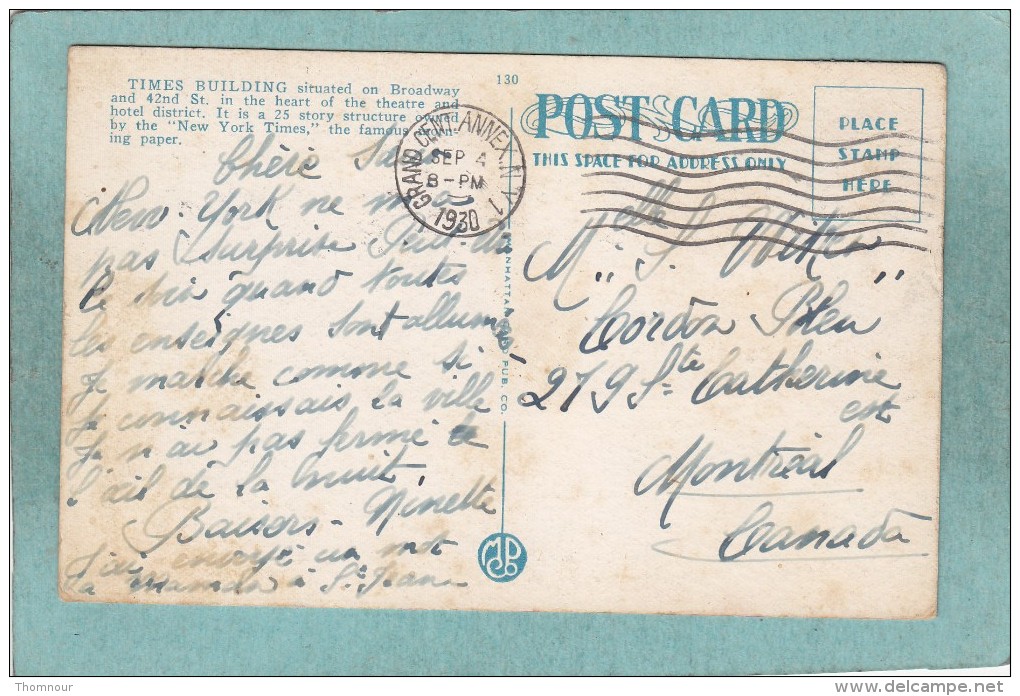 TIMES BUILDING situated on Broadway
and 42nd St. in the heart of the theatre and
hotel district. It is a 25 story structure owned
by the "New York Times," the famous
ing paper.
130
POST CARD
THIS SPACE FOR ADDRESS ONLY
PLACE
STAMP
HERE
GRAND CENT. ANNEX. N.Y. 1
SEP 4
8-PM
1930
Chère
New-York ne m'a
pas surprise Peut-être
le soir quand toutes
les enseignes sont allumé
Je marche comme si
je connaissais la ville
Je n'ai pas fermé
l'œil de la nuit,
Baisers- Ninette
J'ai envoyé un mot
à St Jean
MANHATTAN CARD PUB. CO.
Melle S.
"Cordon Bleu"
279 Ste Catherine
est
Montréal
Canada
Thomnour
delcampe.net